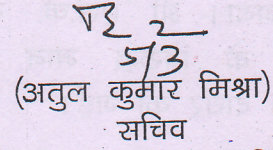 (अतुल कुमार मिश्रा)
सचिव